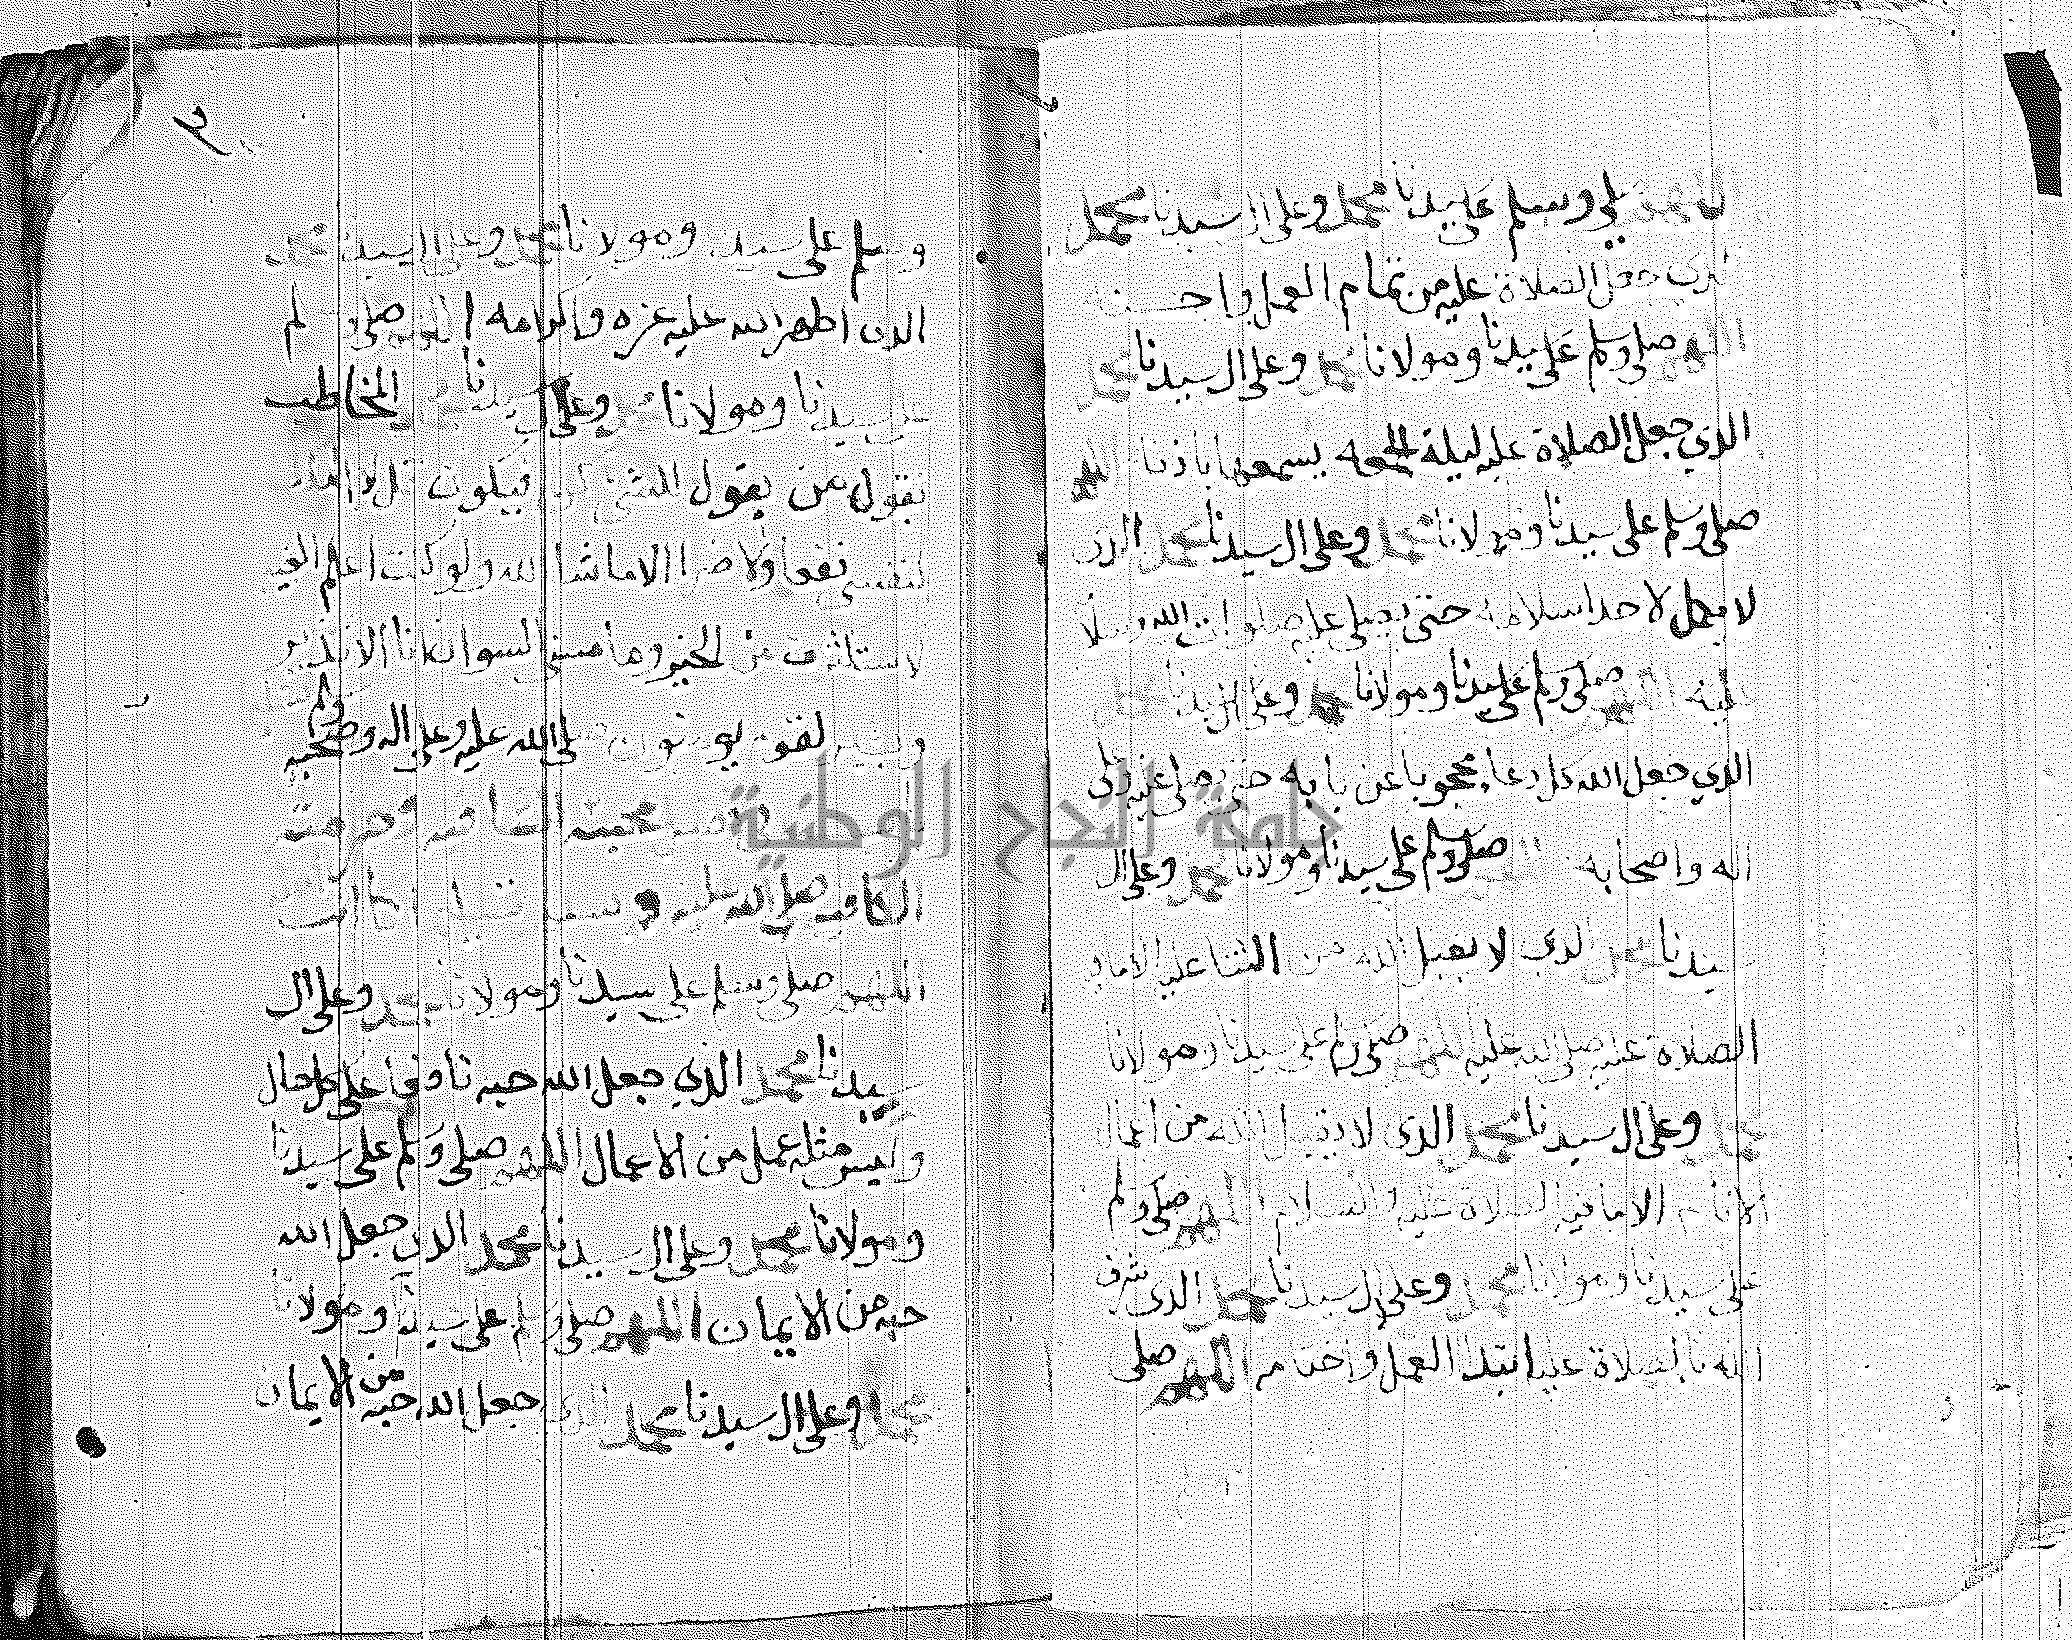 اللهم صلي وسلم على سيدنا محمد وعلى ال سيدنا محمد
جعل الصلاة عليه من تمام العمل و
اللهم صلي وسلم على سيدنا ومولانا محمد وعلى ال سيدنا محمد
الذي جعل الصلاة عليه ليلة الجمعه يسمعها باذنا اللهم
صلي وسلم على سيدنا ومولانا محمد وعلى ال سيدنا محمد الذي
لا يكمل لاحد اسلامه حتى يصلى عليه صلوات الله وسلا
اللهم صلي وسلم على سيدنا ومولانا محمد وعلى ال سيدنا محمد
الذي جعل الله كل دعا محجوبا عن بابه حتى يصلى عليه وعلى
اله واصحابه اللهم صلي وسلم على سيدنا ومولانا محمد وعلى ال
سيدنا محمد الذي لا يقبل الله من الثنا عليه الا ما
الصلاة عليه صلى الله عليه اللهم صلي وسلم على سيدنا ومولانا
محمد وعلى ال سيدنا محمد الذي لا يقبل الله من اعمال
الانام الا ما فيه الصلاة عليه والسلام اللهم صلي وسلم
على سيدنا ومولانا محمد وعلى ال سيدنا محمد الذي شرف
الله بالصلاة عليه ابتدا العمل واختامه اللهم صلي
٣
وسلم على سيدنا ومولانا محمد وعلى ال سيدنا محمد
الذي اظهر الله عليه عزه واكرامه اللهم صلي وسلم
على سيدنا ومولانا محمد وعلى ال سيدنا محمد المخاطب
بقول من يقول للشي كن فيكون قل لا املك
لنفسي نفعا ولا ضرا الا ما شا الله ولو كنت اعلم الغيب
لاستكثرت من الخير وما مسني السو ان انا الا نذير
وبشير لقوم يومنون صلى الله عليه وعلى اله وصحبه وسلم
اللهم صلي وسلم على سيدنا ومولانا محمد وعلى ال
سيدنا محمد الذي جعل الله حبه نافعا على كل حال
وليس مثله عمل من الاعمال اللهم صلي وسلم على سيدنا
ومولانا محمد وعلى ال سيدنا محمد الذي جعل الله
حبه من الايمان اللهم صلي وسلم على سيدنا ومولانا
محمد وعلى ال سيدنا محمد الذي جعل الله حبه من الايمان
جامعة النجاح الوطنية